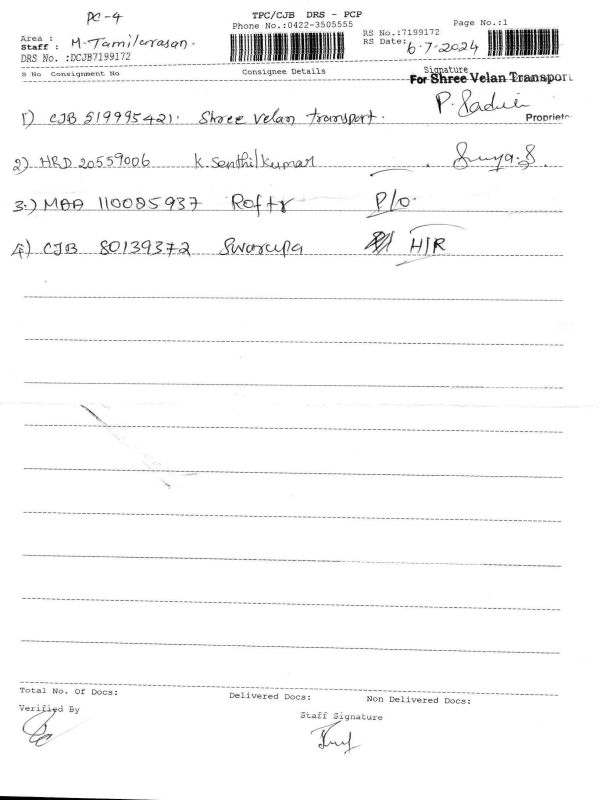 PC-4
TPC/CJB DRS - PCP
Phone No.:0422-3505555
Page No.:1
Area :
Staff : M.Tamilarasan.
RS No.:7199172
RS Date: 6.7.2024
DRS No. :DCJB7199172
S No Consignment No Consignee Details Signature
For Shree Velan Transport
1) CJB 519995421. Shree Velan transport.
Proprietor
2) HRD 20559006 K.Senthilkumar Surya.S.
3.) MAA 110085937 P/O.
4) CJB 80139372 Swarupa H/R
Total No. Of Docs: Delivered Docs: Non Delivered Docs:
Verified By
Staff Signature